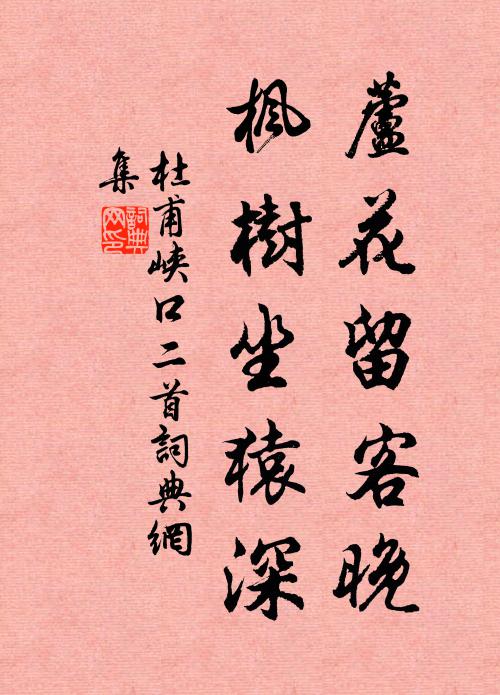 蘆花留客晚
楓樹坐猿深
杜甫峽口二首詞典網
集
詞典网印